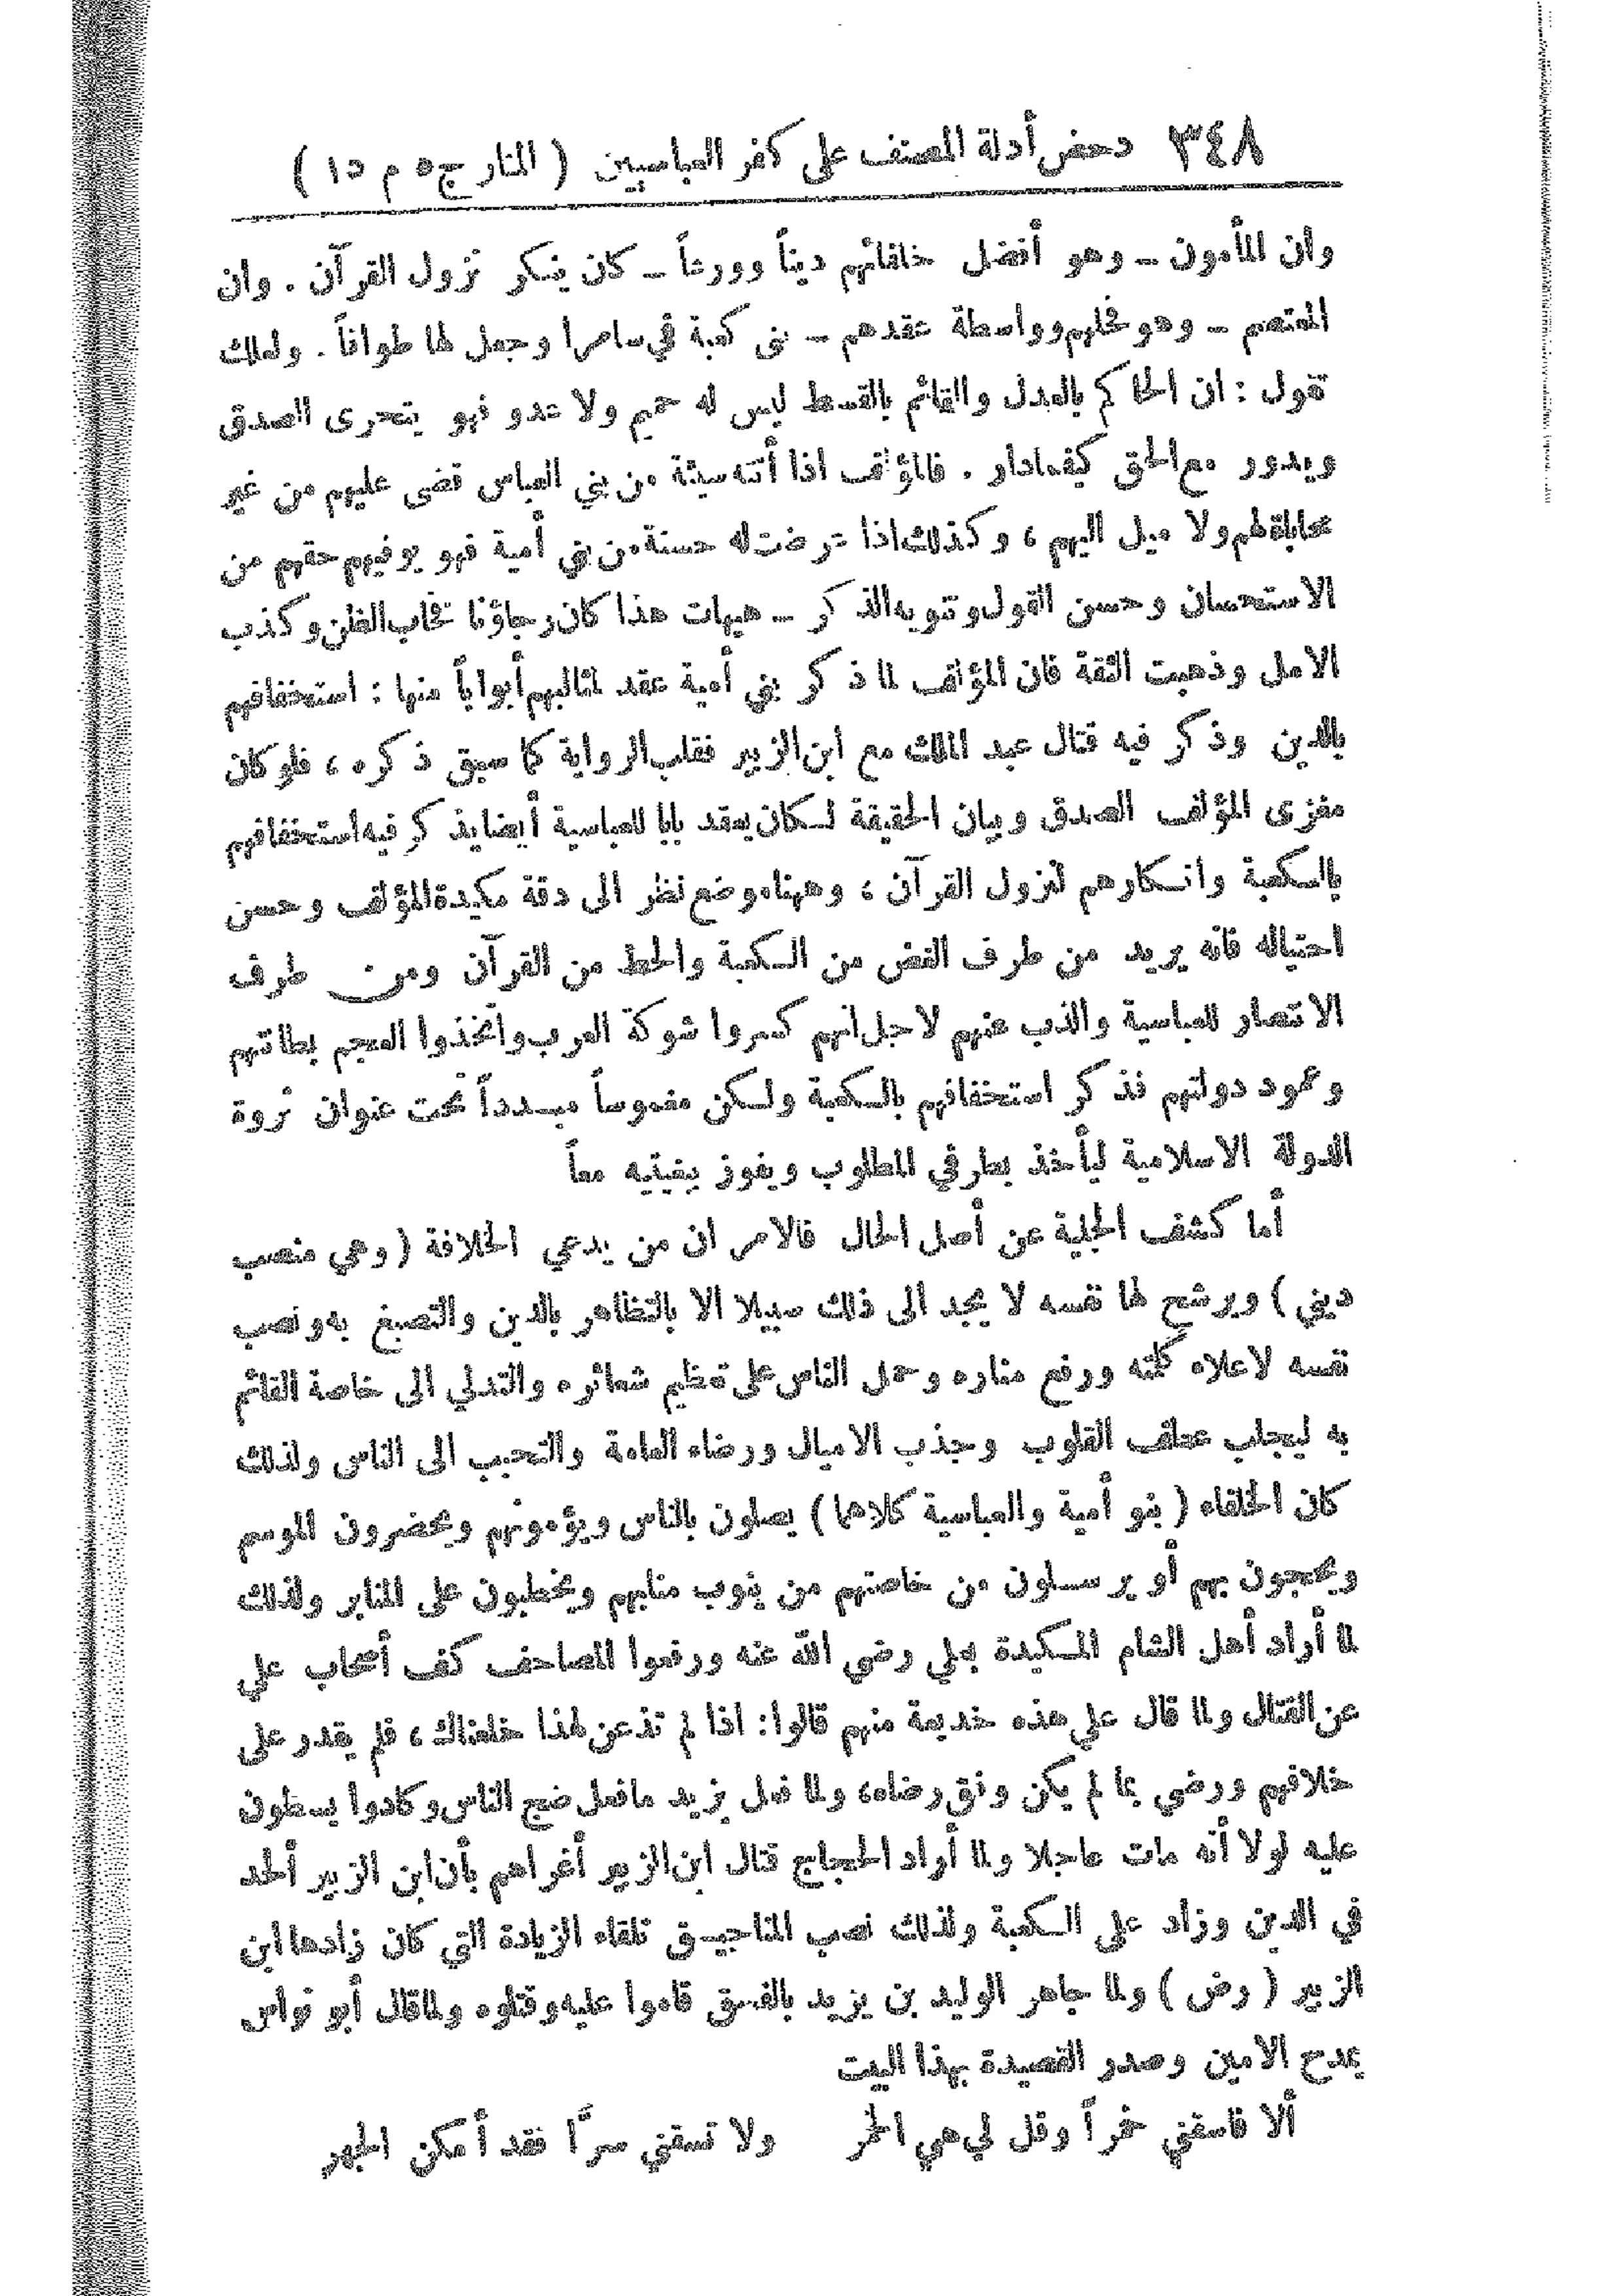 ٣٤٨ دحض أدلة المصنف على كفر العباسيين ( المنار ج ٥ م ١٥ )
وان المأمون ــ وهو أفضل خلفائهم ديناً وورعاً ــ كان ينكر نزول القرآن . وان
المعتصم ــ وهو فحلهم وواسطة عقدهم ــ بنى كعبة في سامرا وجعل لها طوافاً . ولعلك
تقول : ان الحاكم بالعدل والقائم بالقسط ليس له حميم ولا عدو فهو يتحرى الصدق
ويدور مع الحق كيفما دار . فالمؤلف اذا أتته سيئة من بني العباس قضى عليهم من غير
محاباة لهم ولا ميل اليهم ، وكذلك اذا عرضت له حسنة من بني أمية فهو يوفيهم حقهم من
الاستحسان وحسن القول وتنويه الذكر ــ هيهات هذا كان رجاؤنا فخاب الظن وكذب
الامل وذهبت الثقة فان المؤلف لما ذكر بني أمية عقد لمثالبهم أبواباً منها : استخفافهم
بالدين وذكر فيه قتال عبد الملك مع ابن الزبير فقلب الرواية كما سبق ذكره ، فلو كان
مغزى المؤلف الصدق وبيان الحقيقة لكان يعقد بابا للعباسية أيضا يذكر فيه استخفافهم
بالكعبة وانكارهم لنزول القرآن ، وههنا موضع نظر الى دقة مكيدة المؤلف وحسن
احتياله فانه يريد من طرف الغض من الكعبة والحط من القرآن ومن طرف
الانتصار للعباسية والذب عنهم لاجل انهم كسروا شوكة العرب واتخذوا العجم بطانتهم
وعمود دولتهم فذكر استخفافهم بالكعبة ولكن مغموساً مبدداً تحت عنوان ثروة
الدولة الاسلامية ليأخذ بطرفي المطلوب ويفوز ببغيتيه معاً
أما كشف الجلية عن أصل الحال فالامر ان من يدعي الخلافة ( وهي منصب
ديني ) ويرشح لها نفسه لا يجد الى ذلك سبيلا الا بالتظاهر بالدين والتصبغ به ونصب
نفسه لاعلاء كلمته ورفع مناره وحمل الناس على تعظيم شعائره والتدلي الى خاصة القائم
به ليجلب عطف القلوب وجذب الاميال ورضاء العامة والتحبب الى الناس ولذلك
كان الخلفاء ( بنو أمية والعباسية كلاهما ) يصلون بالناس ويؤمونهم ويحضرون الموسم
ويحجون بهم أو يرسلون من خاصتهم من ينوب منابهم ويخطبون على المنابر ولذلك
لما أراد أهل الشام المكيدة بعلي رضي الله عنه ورفعوا المصاحف كف أصحاب علي
عن القتال ولما قال علي هذه خديعة منهم قالوا : اذا لم تذعن لهذا خلعناك ، فلم يقدر على
خلافهم ورضي بما لم يكن وفق رضاه ، ولما فعل يزيد ما فعل ضج الناس وكادوا يسطون
عليه لولا أنه مات عاجلا ولما أراد الحجاج قتال ابن الزبير أغراهم بأن ابن الزبير ألحد
في الدين وزاد على الكعبة ولذلك نصب المناجيق تلقاء الزيادة التي كان زادها ابن
الزبير ( رض ) ولما جاهر الوليد بن يزيد بالفسق قاموا عليه وقتلوه ولما قال أبو نواس
يمدح الامين وصدر القصيدة بهذا البيت
ألا فاسقني خمراً وقل لي هي الخمر ولا تسقني سرًّا فقد أمكن الجهر